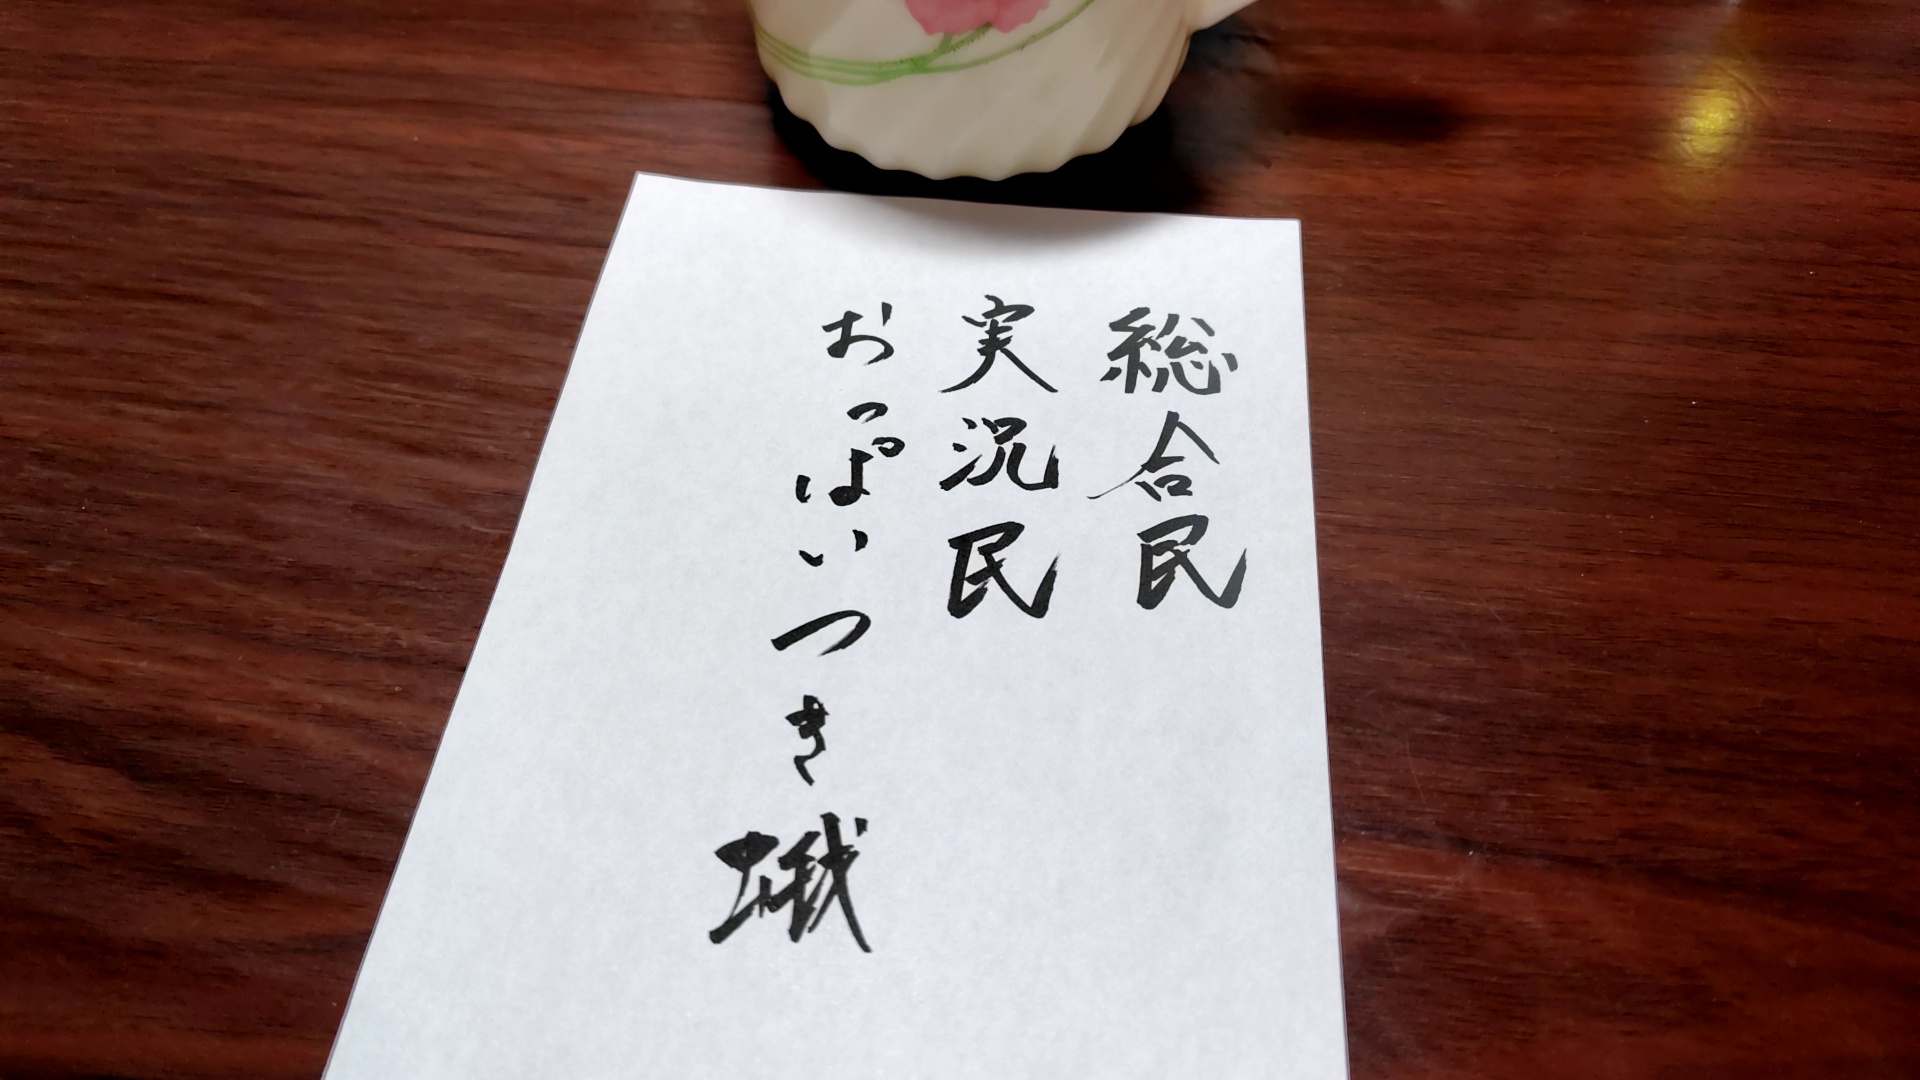 総合民
実況民
おっぱいつき